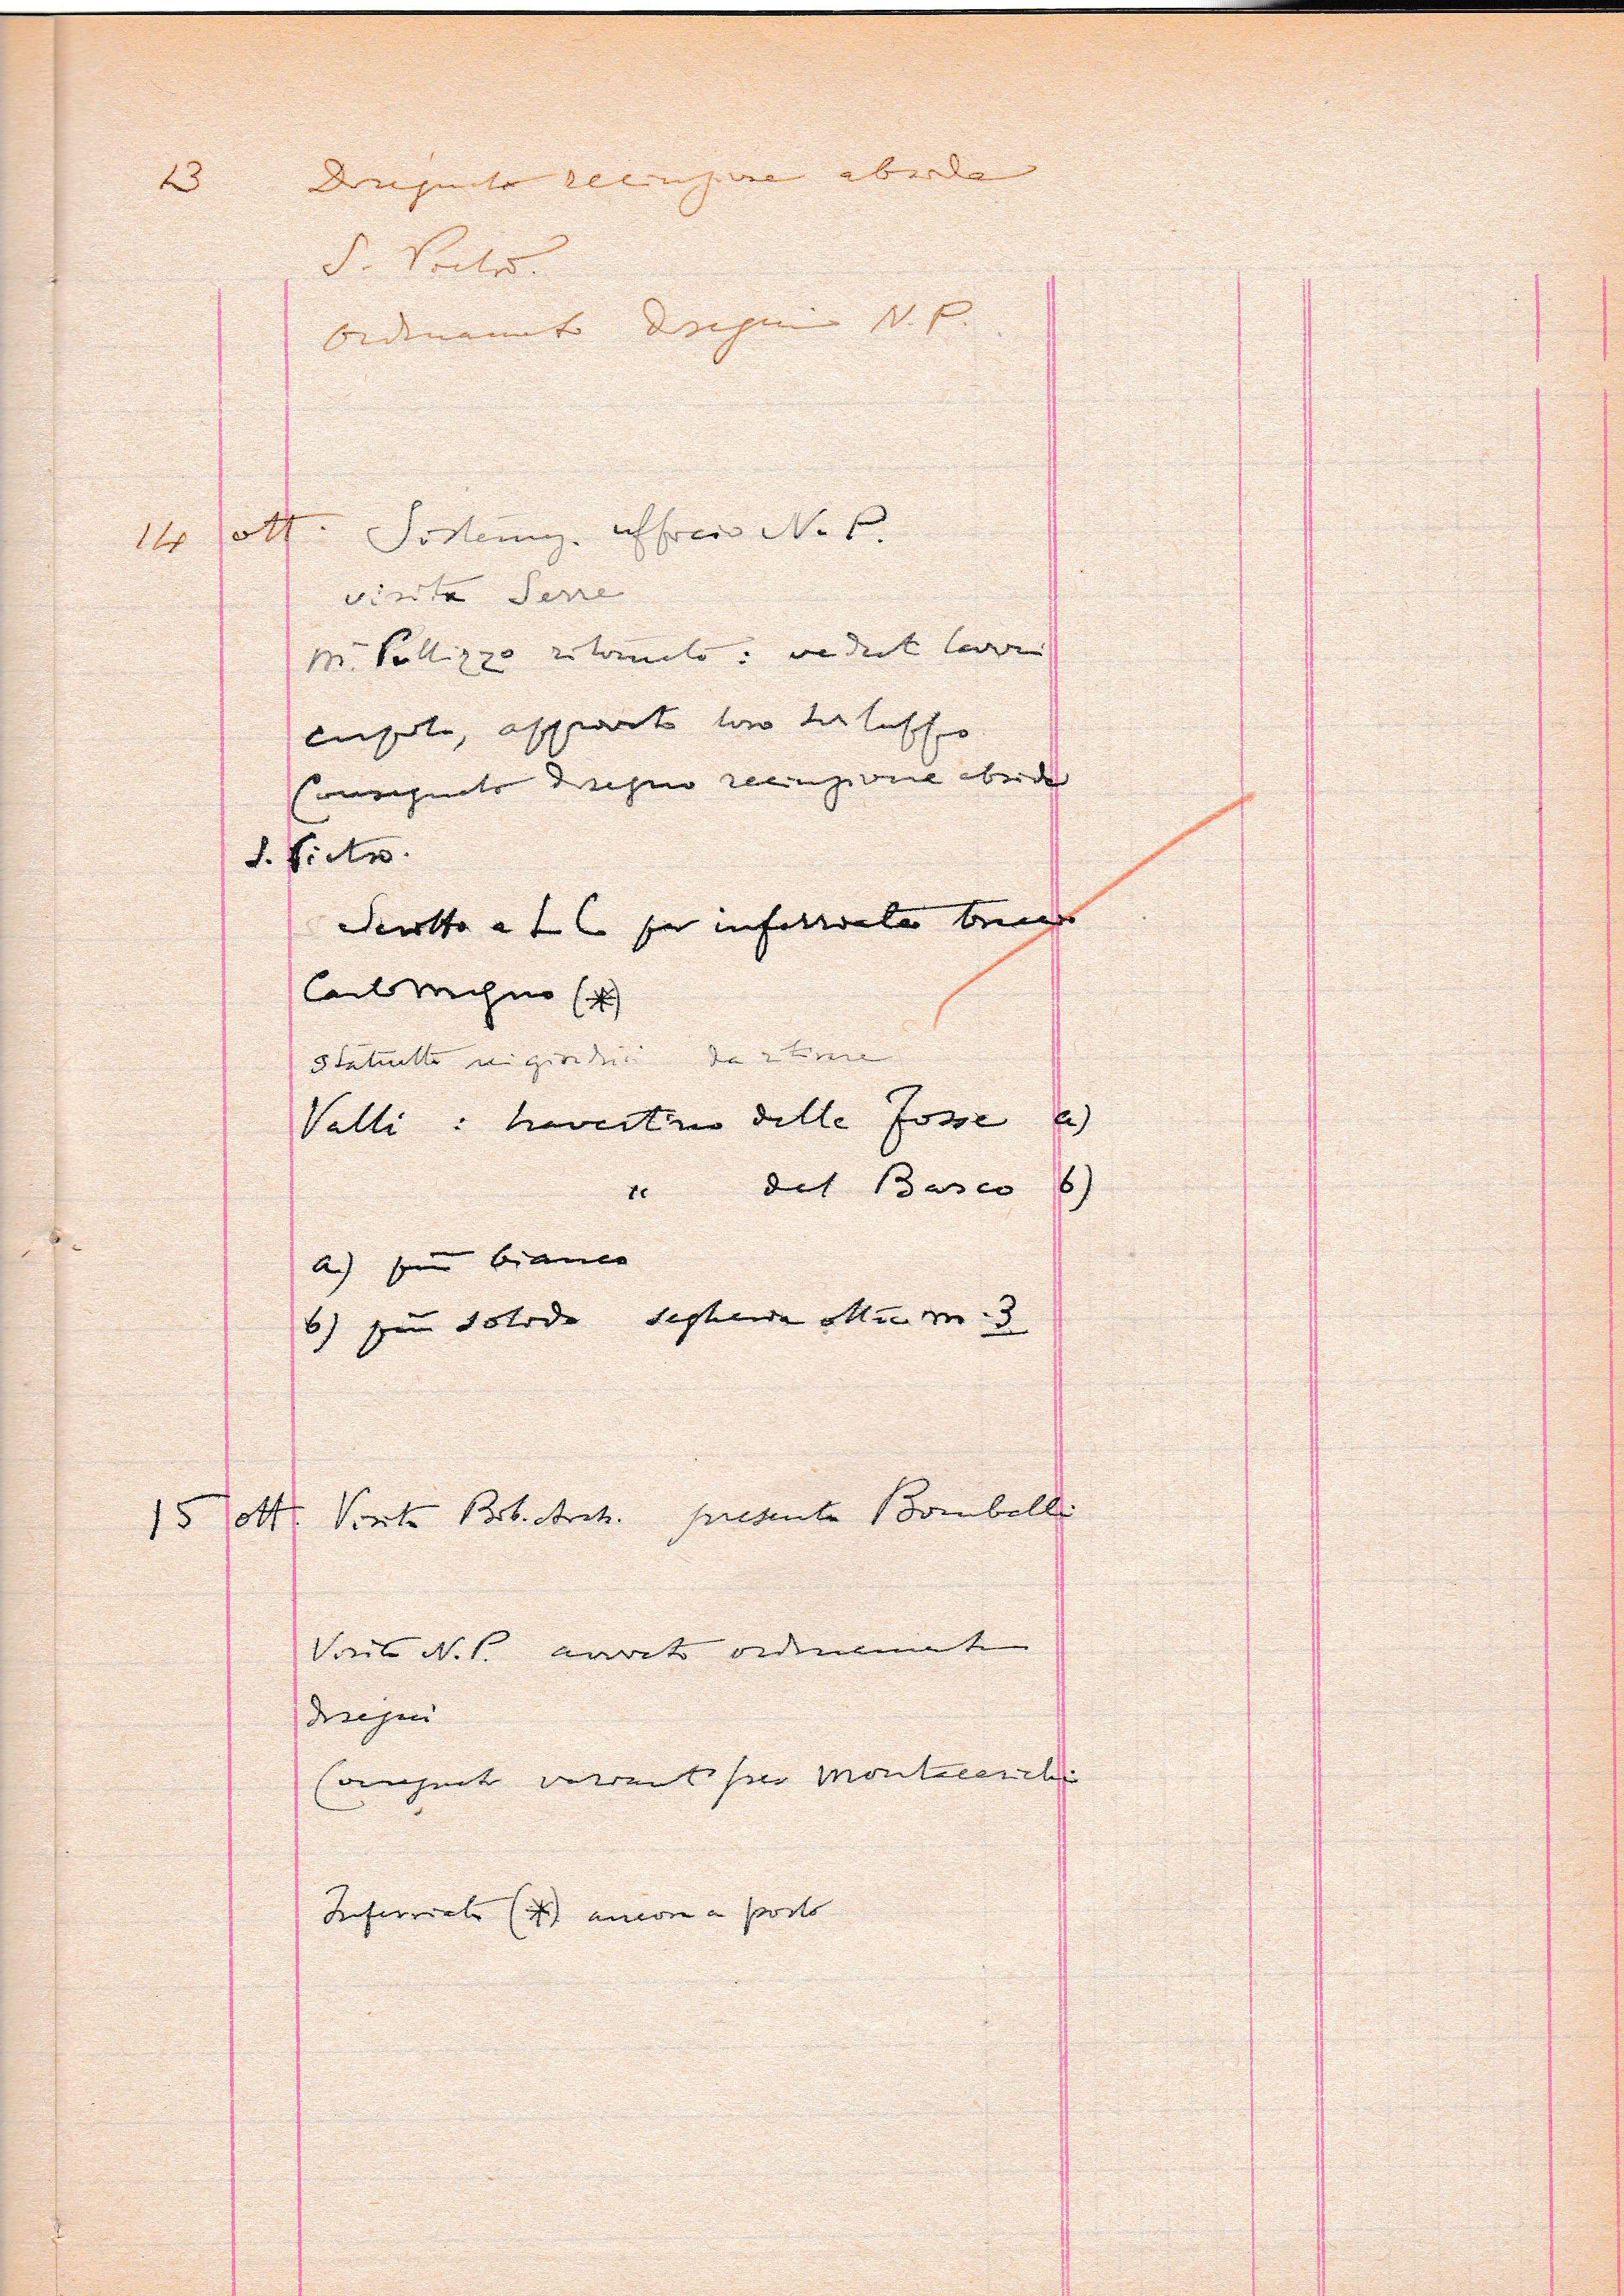 13 Disegnato recinzione abside
S. Pietro.
ordinamento disegni N. P.
14 ott. Sistemaz. ufficio N. P.
visita Serre
M. Pellizzo ritornato: vedut lavori
cupola, approvato loro sviluppo
Consegnato disegno recinzione abside
S. Pietro.
Scritto a L C per inferriata braccio
Carlo Magno (*)
statuette da ritirare
Valli : travertino delle Fosse a)
" del Barco b)
a) più bianco
b) più solido segheria oltre m. 3
15 ott. Visita Bib. Arch. presente Bombelli
Visita N. P. avviato ordinamento
disegni
Consegnato varianti per Montacarichi
Inferriata (*) ancora a posto